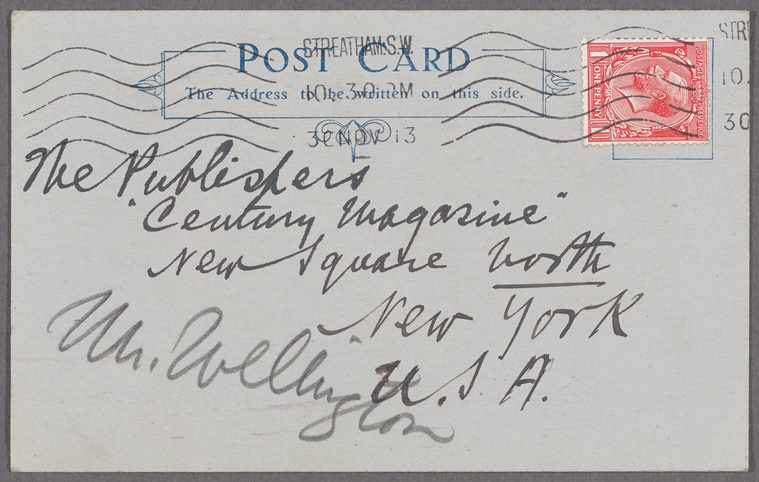 STREATHAM.S.W.
POST CARD
The Address to be written on this side.
10. 30 PM
30 NOV 13
ONE PENNY
STR
10.
30
The Publishers
"Century Magazine"
New Square North
New York
U.S.A.
Mr. Wellington